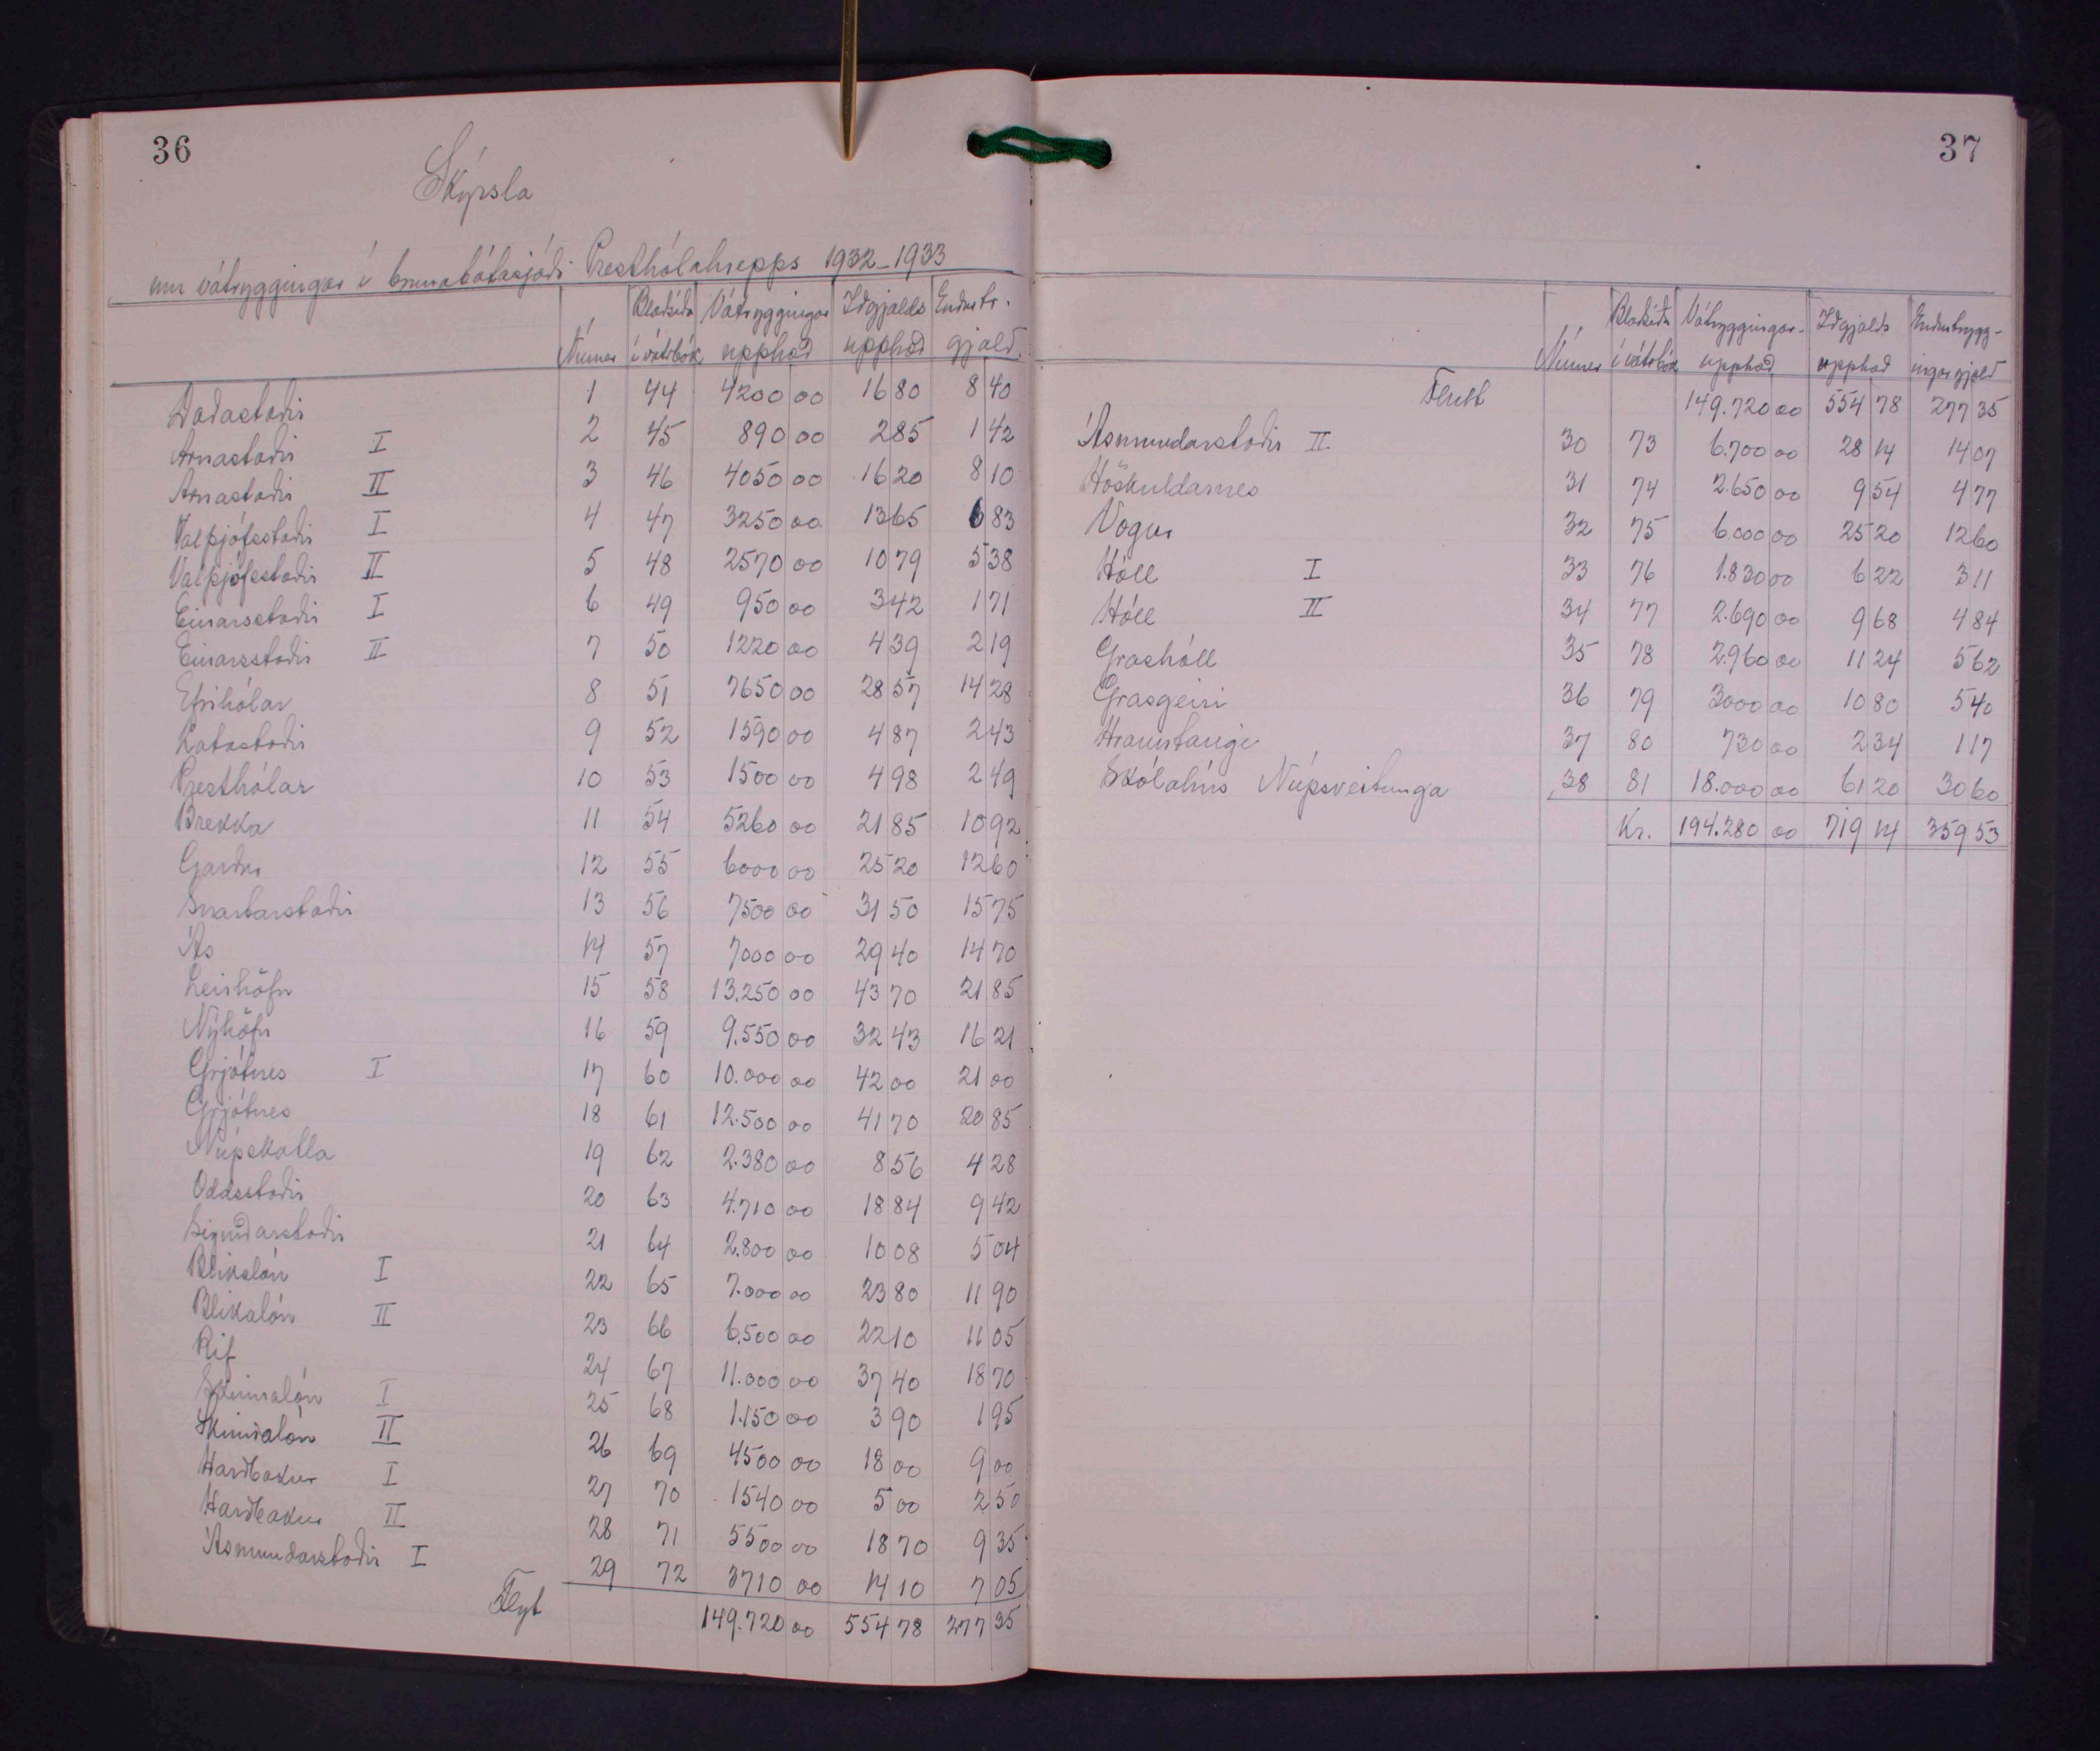 36
Skýrsla
um vátryggingar í brunabótasjóði Presthólahrepps 1932–1933
Númer Blaðsíða í vátrbók Vátryggingar upphæð Iðgjalds upphæð Endurtr. gjald.
Daðastaðir 1 44 4200 00 16 80 8 40
Arnastaðir I 2 45 890 00 2 85 1 42
Arnastaðir II 3 46 4050 00 16 20 8 10
Valþjófsstaðir I 4 47 3250 00 13 65 6 83
Valþjófsstaðir II 5 48 2570 00 10 79 5 38
Einarsstaðir I 6 49 950 00 3 42 1 71
Einarsstaðir II 7 50 1220 00 4 39 2 19
Efrihólar 8 51 7650 00 28 57 14 28
Katastaðir 9 52 1590 00 4 87 2 43
Presthólar 10 53 1500 00 4 98 2 49
Brekka 11 54 5260 00 21 85 10 92
Garður 12 55 6000 00 25 20 12 60
Snartarstaðir 13 56 7500 00 31 50 15 75
Ás 14 57 7000 00 29 40 14 70
Leirhöfn 15 58 13.250 00 43 70 21 85
Nýhöfn 16 59 9.550 00 32 43 16 21
Grjótnes I 17 60 10.000 00 42 00 21 00
Grjótnes 18 61 12.500 00 41 70 20 85
Núpskatla 19 62 2.380 00 8 56 4 28
Oddsstaðir 20 63 4.710 00 18 84 9 42
Sigurðarstaðir 21 64 2.800 00 10 08 5 04
Blikalón I 22 65 7.000 00 23 80 11 90
Blikalón II 23 66 6.500 00 22 10 11 05
Rif 24 67 11.000 00 37 40 18 70
Skinnalón I 25 68 1.150 00 3 90 1 95
Skinnalón II 26 69 4500 00 18 00 9 00
Harðbakur I 27 70 1540 00 5 00 2 50
Harðbakur II 28 71 5500 00 18 70 9 35
Ásmundarstaðir I 29 72 3710 00 14 10 7 05
Flyt 149.720 00 554 78 277 35
37
Númer Blaðsíða í vátrbók Vátryggingar- upphæð Iðgjalds upphæð Endurtrygg- ingargjald
Flutt 149.720 00 554 78 277 35
Ásmundarstaðir II 30 73 6.700 00 28 14 14 07
Höskuldarnes 31 74 2.650 00 9 54 4 77
Vogur 32 75 6.000 00 25 20 12 60
Hóll I 33 76 1.830 00 6 22 3 11
Hóll II 34 77 2.690 00 9 68 4 84
Grashóll 35 78 2.960 00 11 24 5 62
Grasgeiri 36 79 3000 00 10 80 5 40
Hrauntangi 37 80 730 00 2 34 1 17
Skólahús Núpsveitunga 38 81 18.000 00 61 20 30 60
Kr. 194.280 00 719 14 359 53